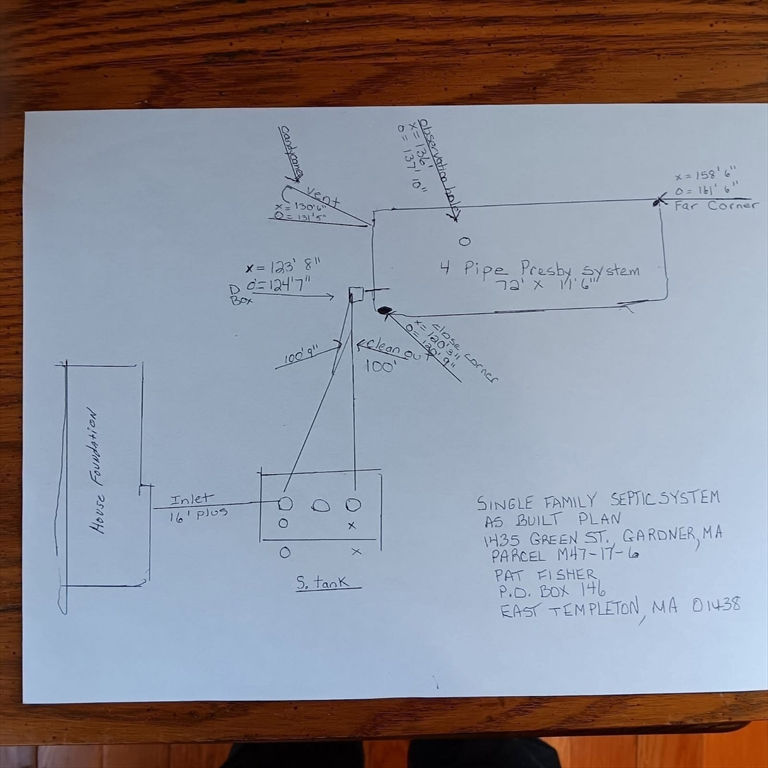 Candycane
Vent
x = 130'6"
O = 131'5"
Observation hole
x = 136'
O = 137' 10"
x = 158' 6"
O = 161' 6"
Far Corner
4 Pipe Presby System
72' x 11'6"
x = 123' 8"
O = 124'7"
D
Box
close corner
x = 120'3"
100'9"
clean out
100'
House Foundation
Inlet
16' plus
O
x
O
x
S. tank
SINGLE FAMILY SEPTIC SYSTEM
AS BUILT PLAN
1435 GREEN ST., GARDNER, MA
PARCEL M47-17-6
PAT FISHER
P.O. BOX 146
EAST TEMPLETON, MA 01438